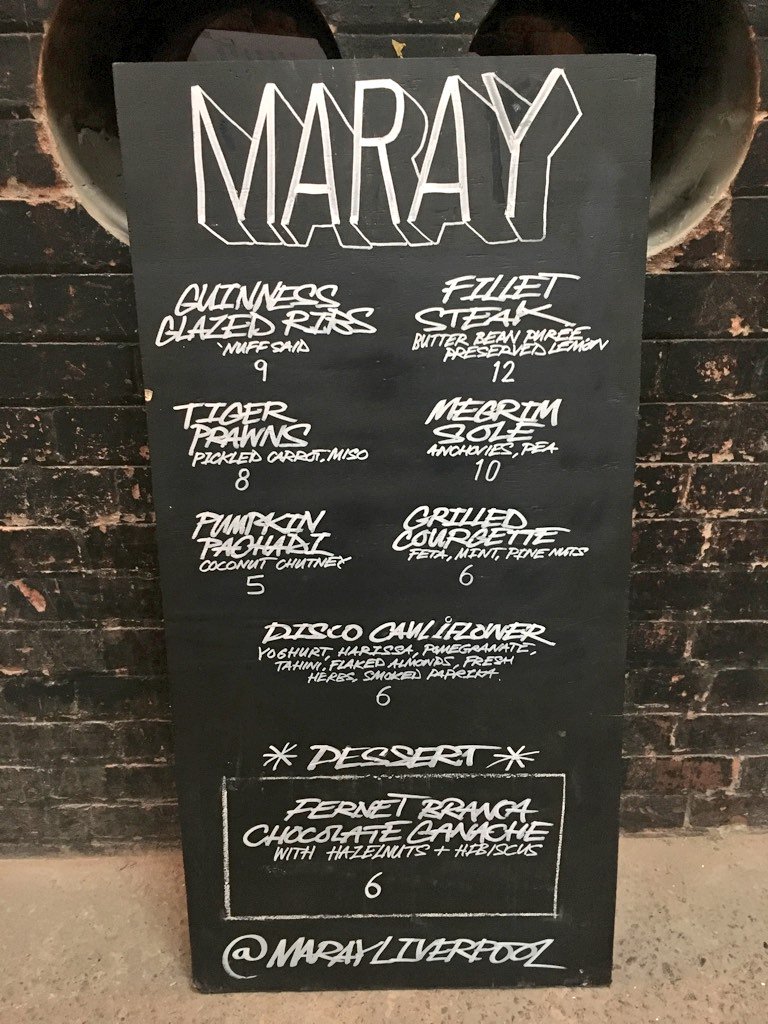 MARAY
GUINNESS
GLAZED RIBS
'NUFF SAID
9
FILLET
STEAK
BUTTER BEAN PUREE
PRESERVED LEMON
12
TIGER
PRAWNS
PICKLED CARROT, MISO
8
MEGRIM
SOLE
ANCHOVIES, PEA
10
PUMPKIN
PACHADI
COCONUT CHUTNEY
5
GRILLED
COURGETTE
FETA, MINT, PINE NUTS
6
DISCO CAULIFLOWER
YOGHURT, HARISSA, POMEGRANATE,
TAHINI, FLAKED ALMONDS, FRESH
HERBS, SMOKED PAPRIKA.
6
* DESSERT *
FERNET BRANCA
CHOCOLATE GANACHE
WITH HAZELNUTS + HIBISCUS
6
@MARAYLIVERPOOL